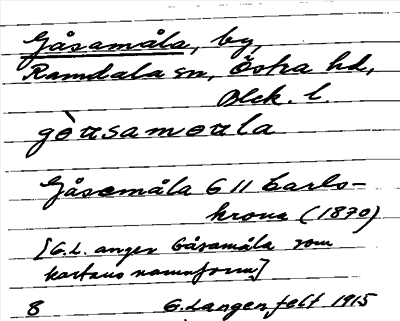 Gåsamåla, by,
Ramdala sn, Östra hd,
Blek. l.
gò̀ɑsamoɑla
Gåsemåla G 11 Carls-
krona (1870)
[G.L. anger Gåsamåla som
kartans namnform]
8 G. Langenfelt 1915